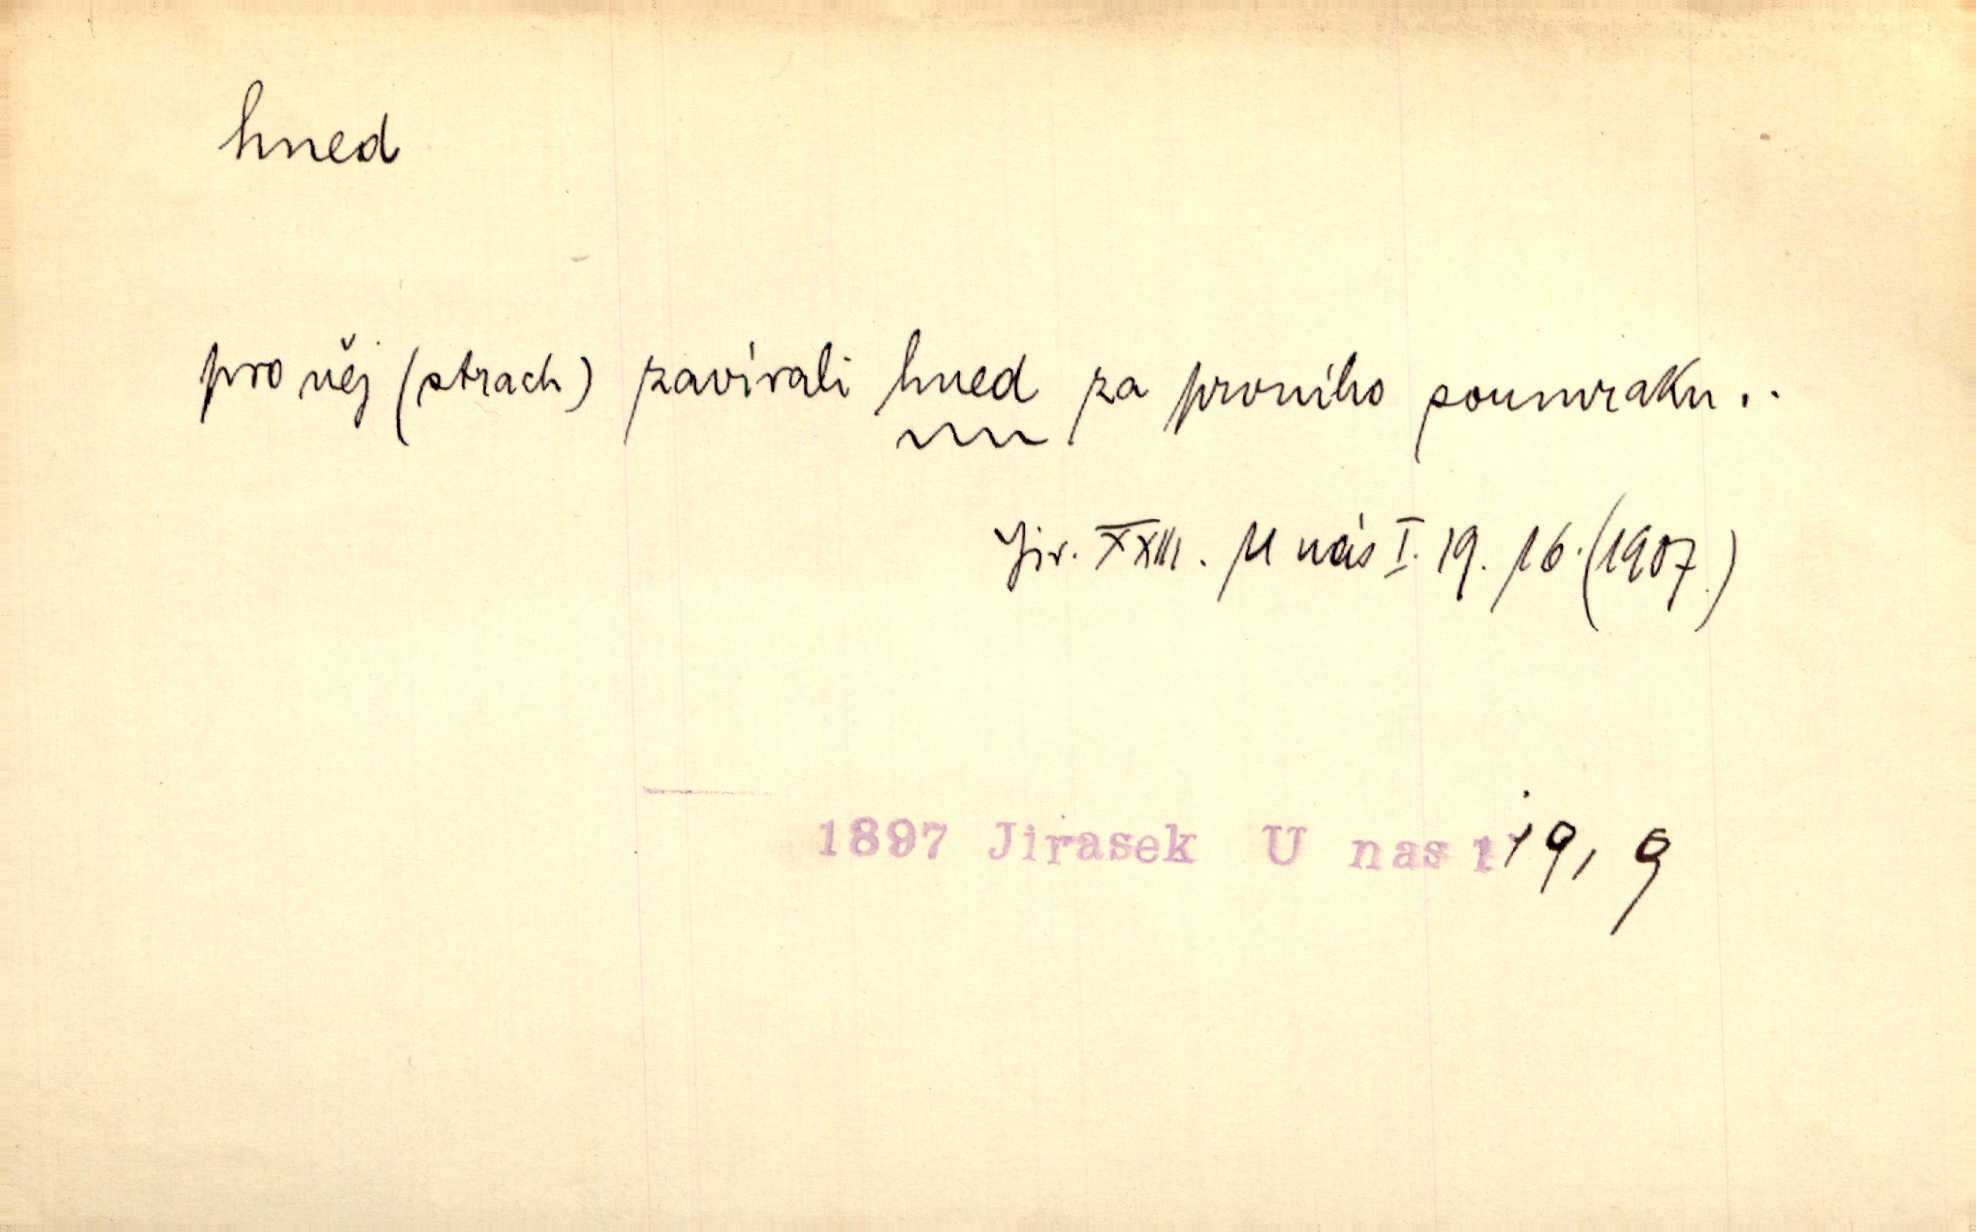 hned
pro něj (strach) zavírali hned za prvního soumraku..
Jir. XXIII. U nás I. 19. 16. (1907.)
1897 Jirasek U nas 1 19, 9